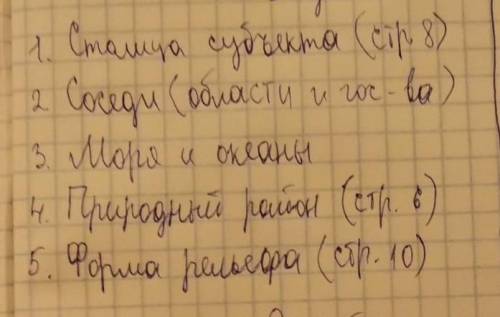 1. Столица субъекта (стр 8)
2 Соседи (области и гос-ва)
3. Моря и океаны
4. Природный район (стр. 6)
5. Форма рельефа (стр. 10)